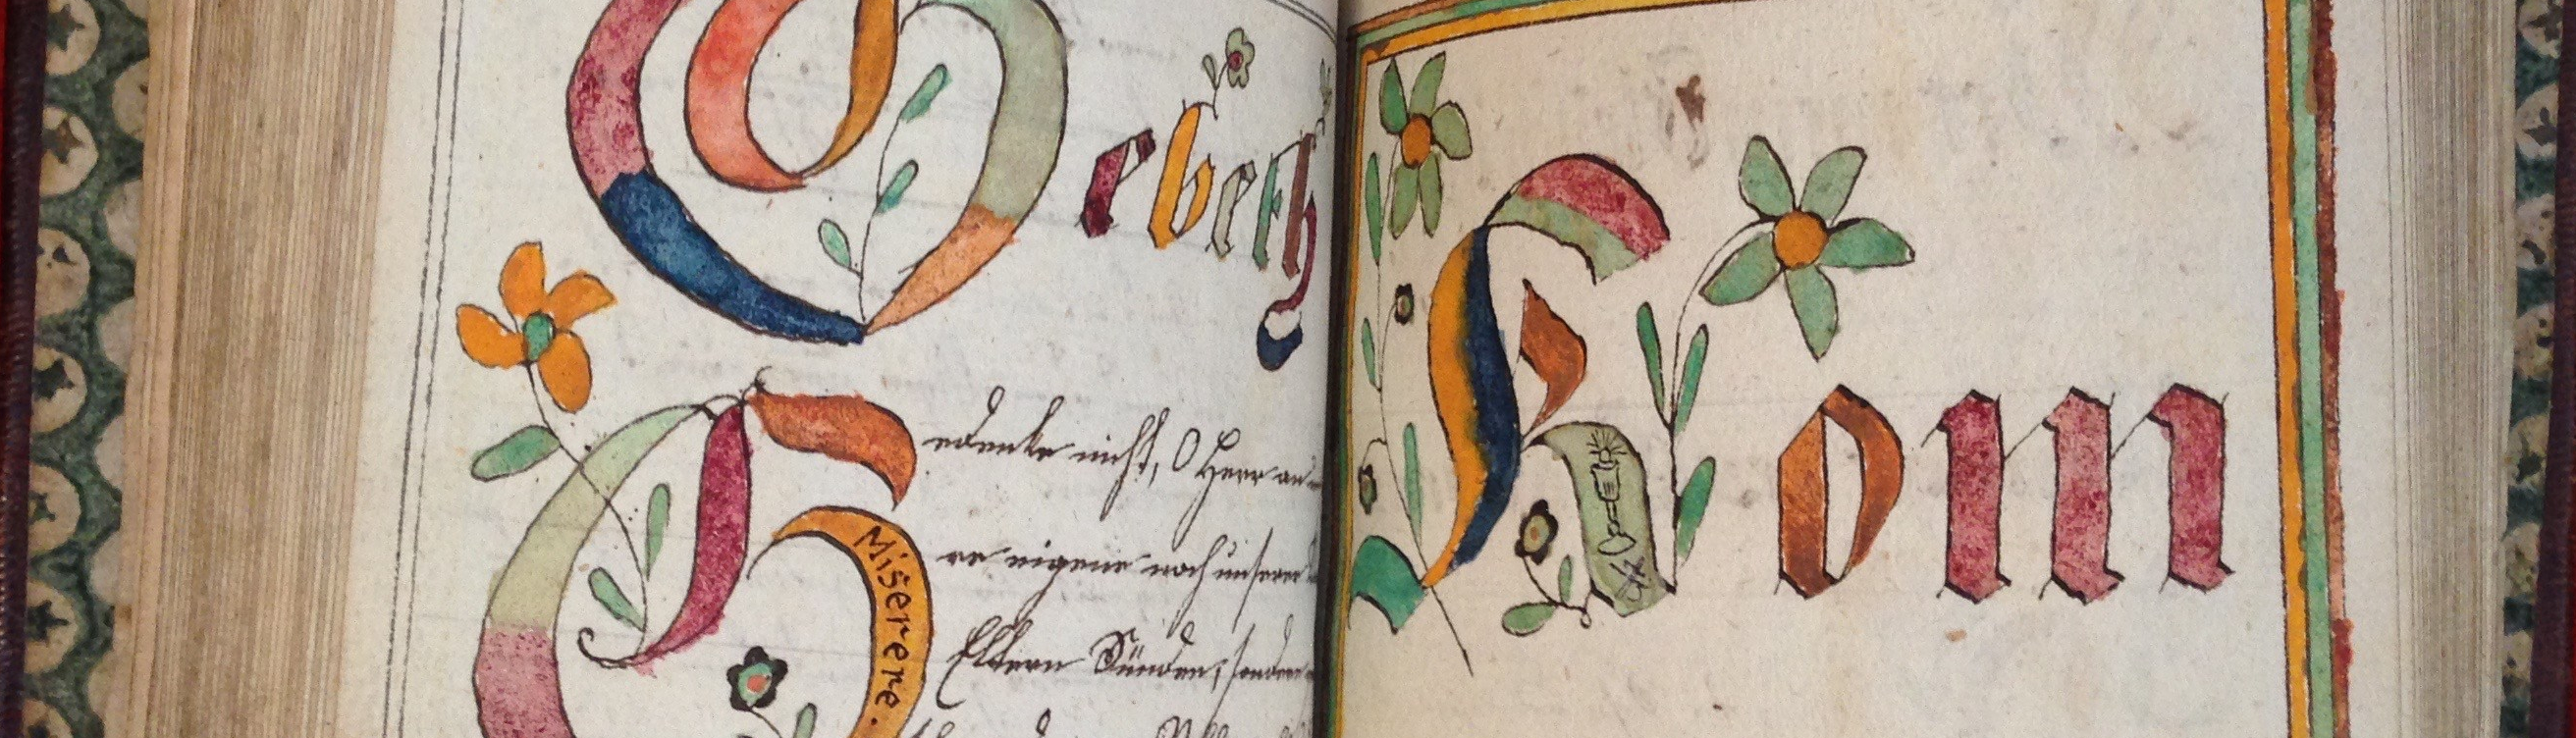 Gebeth
Gedenke nicht, O Herr an
re eigene noch unserer
Eltern Sünden; sondern
Miserere.
Kom̅